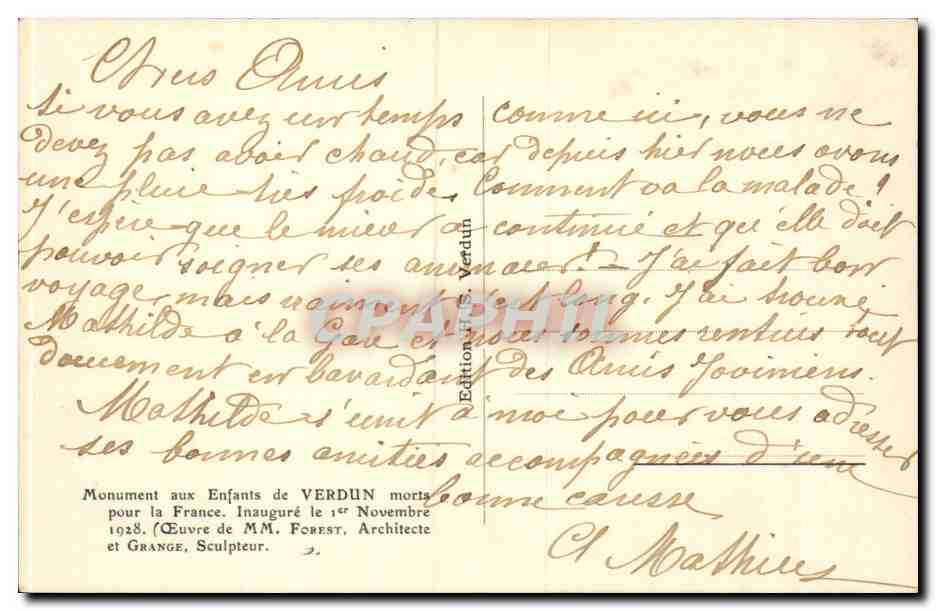 Chers Amis
si vous avez un temps comme ici, vous ne
devez pas avoir chaud, car depuis hier nous avons
une pluie très froide. Comment va la malade ?
J'espère que le mieux a continué et qu'elle doit
pouvoir soigner ses animaux ! – J'ai fait bon
voyage, mais vraiment c'est long. J'ai trouvé
Mathilde à la Gare et nous sommes rentrés tout
doucement en bavardant des Amis Joviniens.
Mathilde s'unit à moi pour vous adresser
ses bonnes amitiés accompagnées d'une
bonne caresse
Cl Mathieu
Edition H. S. Verdun
CPAPHIL
Monument aux Enfants de VERDUN morts
pour la France. Inauguré le 1er Novembre
1928. (Œuvre de MM. FOREST, Architecte
et GRANGE, Sculpteur.